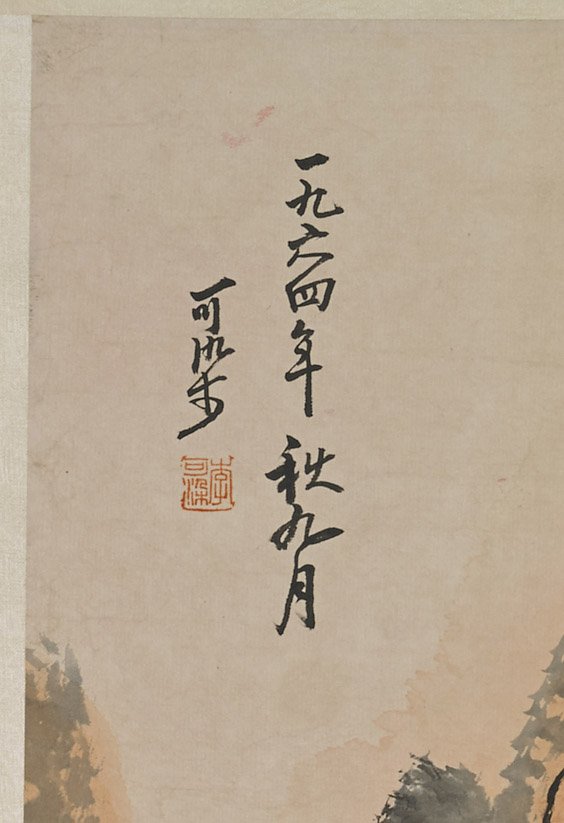 一九六四年秋九月
可染
李可染